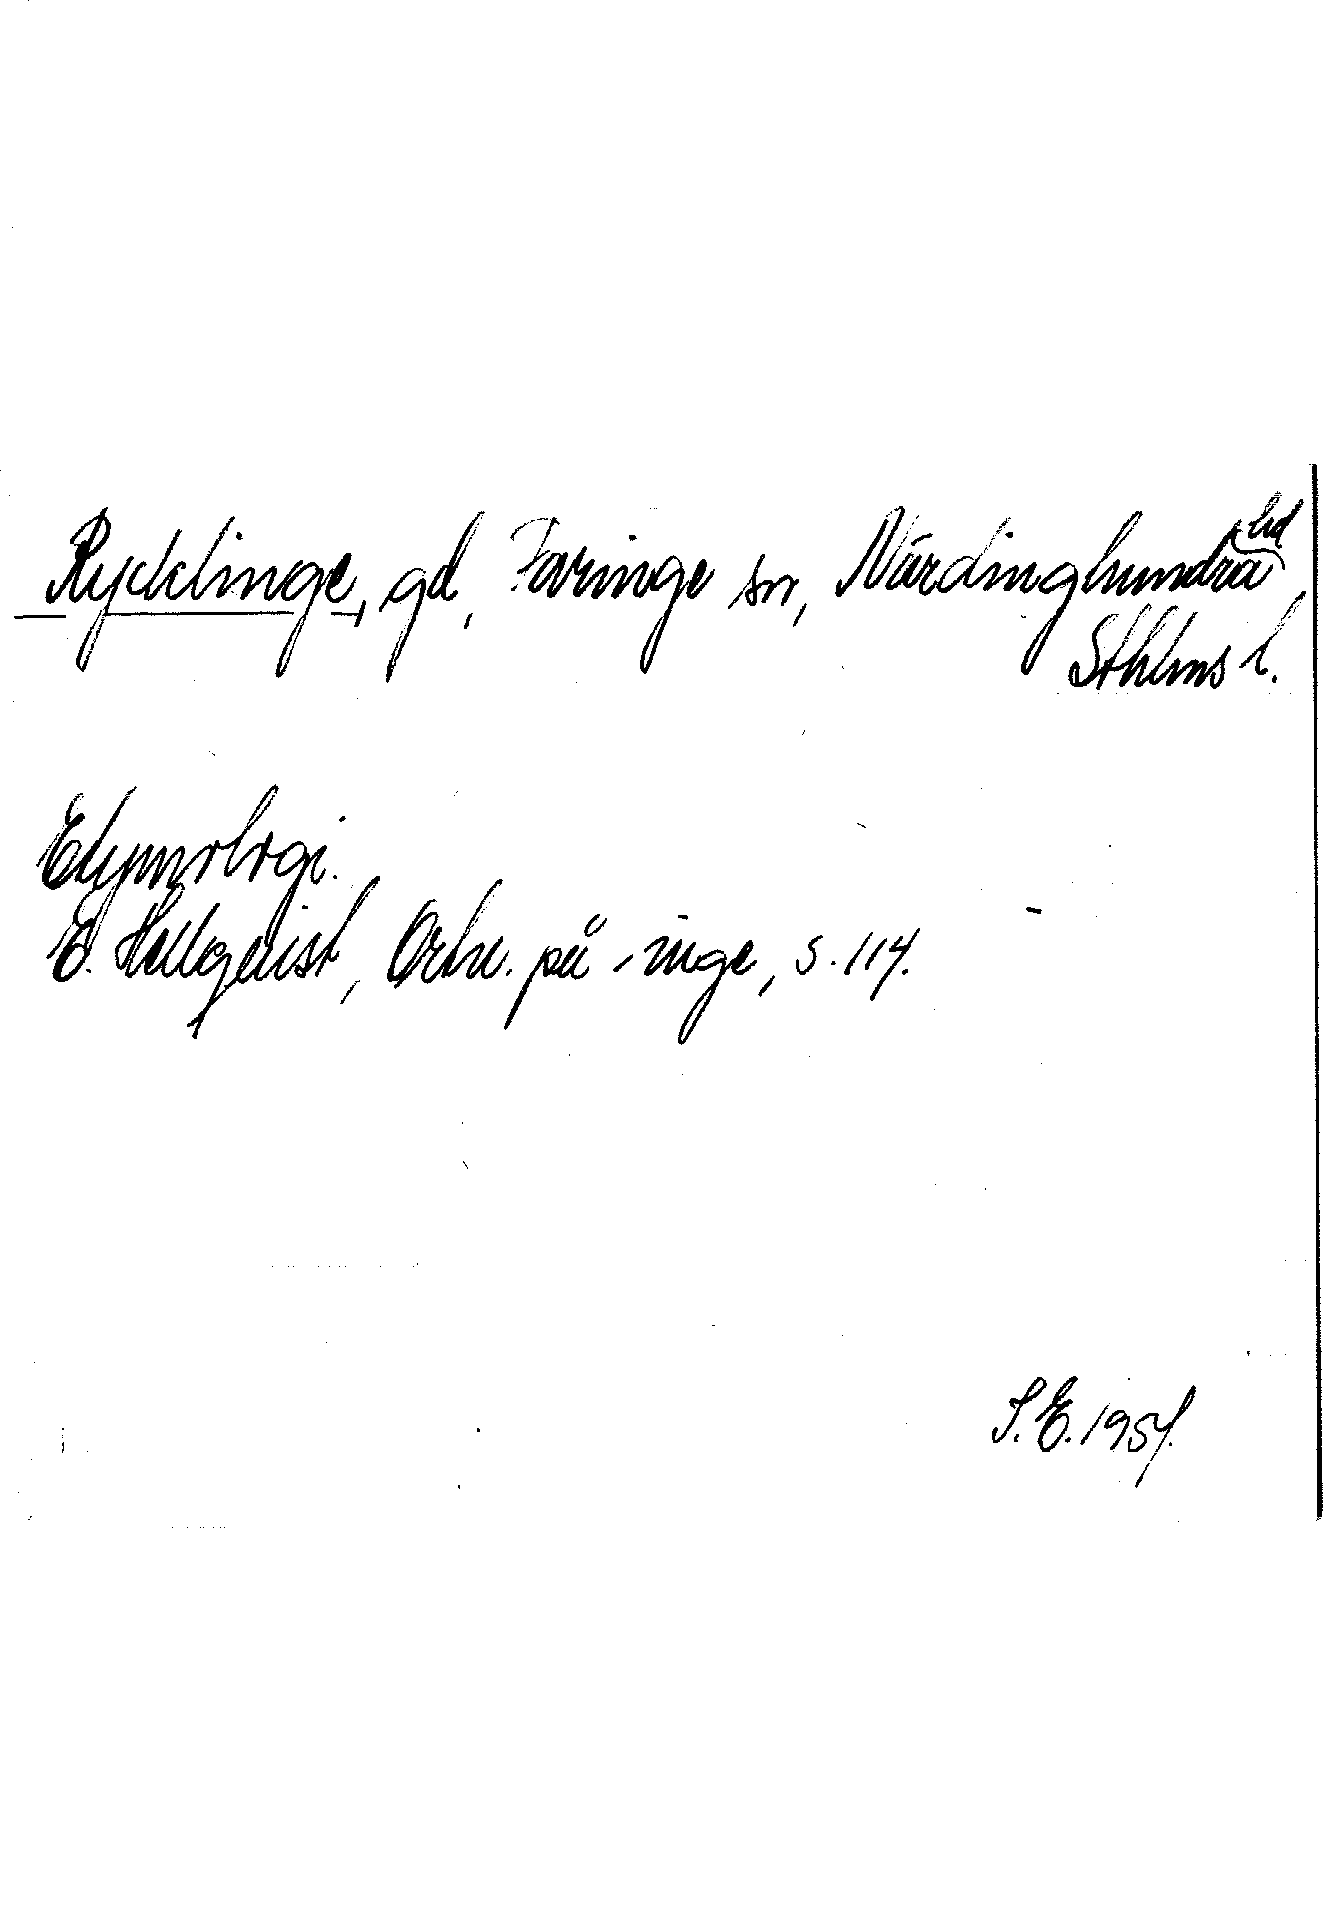 Rycklinge, gd, Faringe sn, Närdinghundra hd,
Sthlms l.
Etymologi.
E. Hellquist, Ortn. på -inge, s. 114.
S.E. 1957.